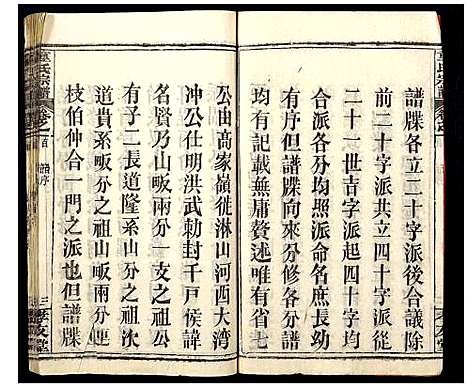 譜牒各立二十字派後合議除
前二十字派共立四十字派從
二十一世吉字派起四十字均
合派各分均照派命名庶長幼
有序但譜牒向來各修
均有記載無庸贅述唯內有省七
公由高家嶺徙淋山河西大湾
冲公仕明洪武勅封千戸侯諱
名賢乃山畈兩分一支之祖公
有子二長道隆系山分之祖次
道貴系畈分之祖山畈兩分
枝伯仲合一門之派也但譜牒
氏宗譜
卷之首
譜序
三
孝友堂